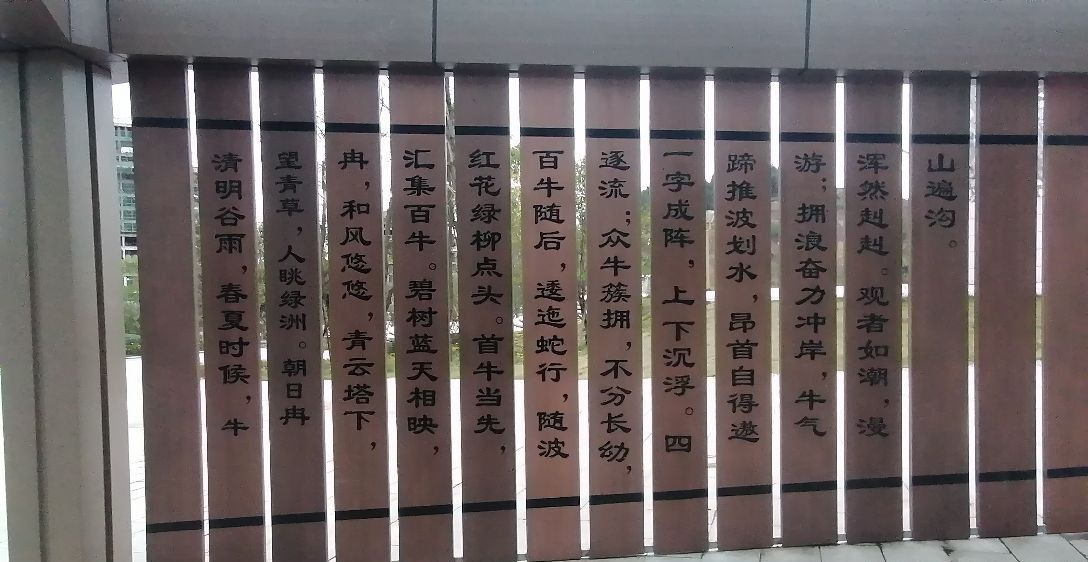 清明谷雨，春夏时候，牛
望青草，人眺绿洲。朝日冉
冉，和风悠悠，青云塔下，
汇集百牛。碧树蓝天相映，
红花绿柳点头。首牛当先，
百牛随后，逶迤蛇行，随波
逐流；众牛簇拥，不分长幼，
一字成阵，上下沉浮。四
蹄推波划水，昂首自得遨
游；拥浪奋力冲岸，牛气
浑然赳赳。观者如潮，漫
山遍沟。